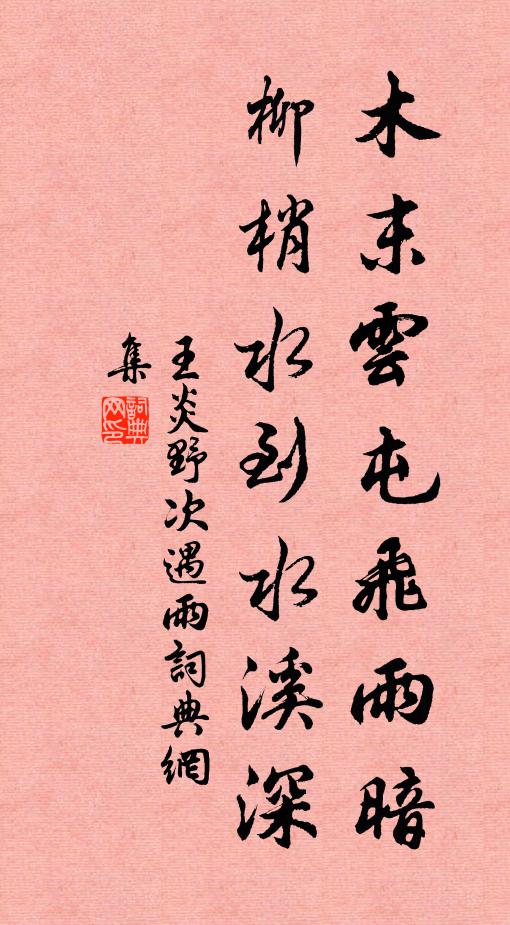 木末雲屯飛雨暗
柳梢水到水溪深
王炎野次遇雨詞典網
集
詞典
网印